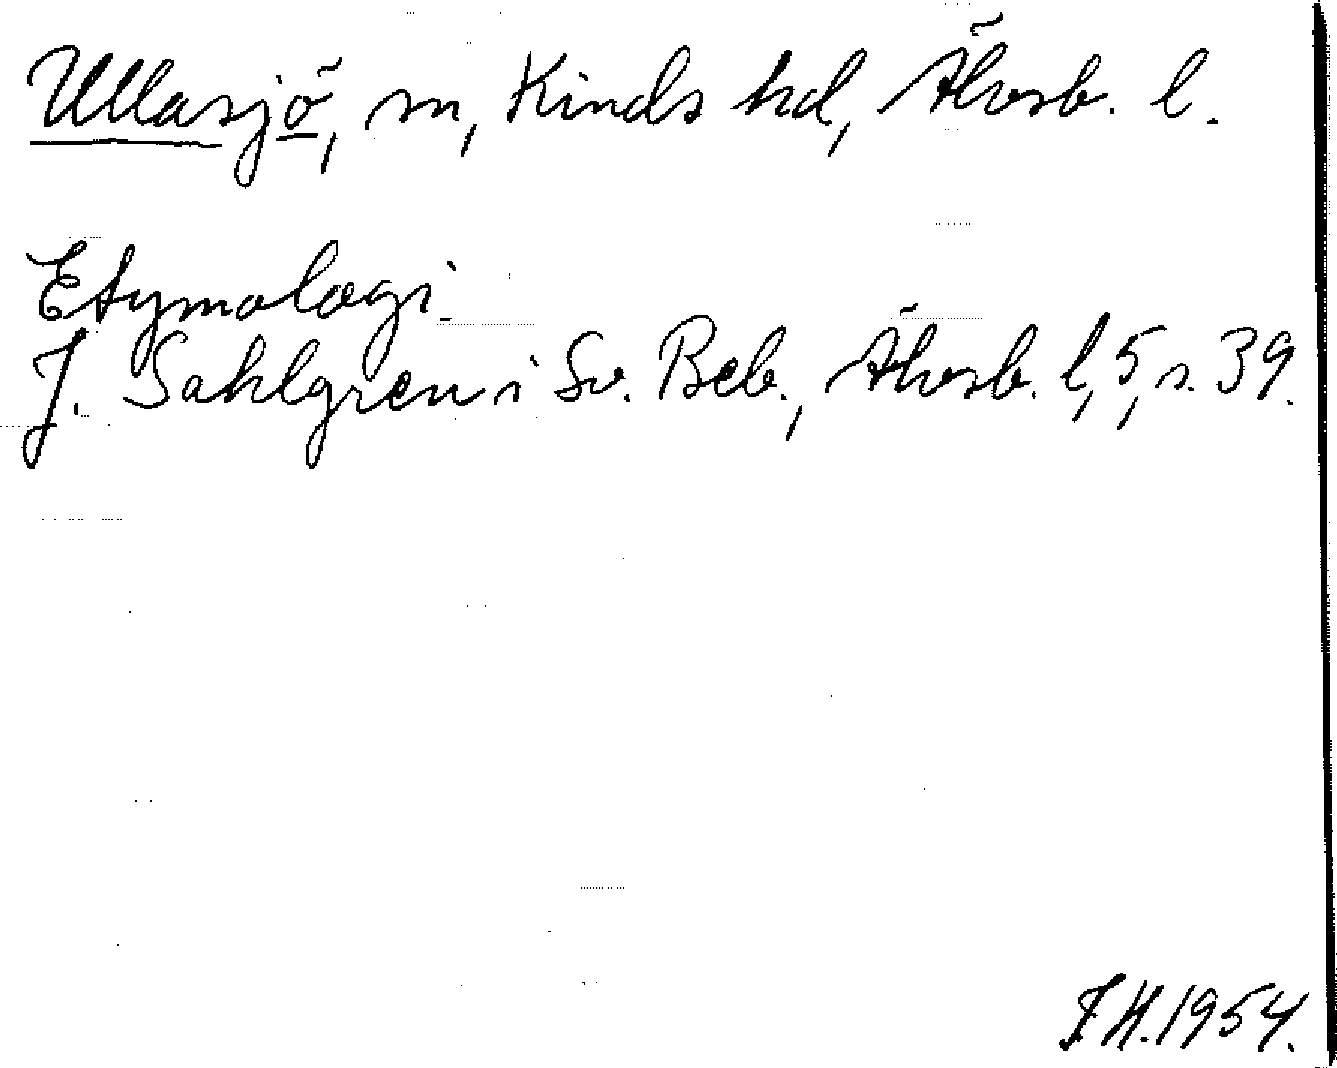 Ullasjö, sn, Kinds hd, Älvsb. l.
Etymologi.
J. Sahlgren i Sv. Beb., Älvsb. l, 5, s. 39.
F.H. 1954.